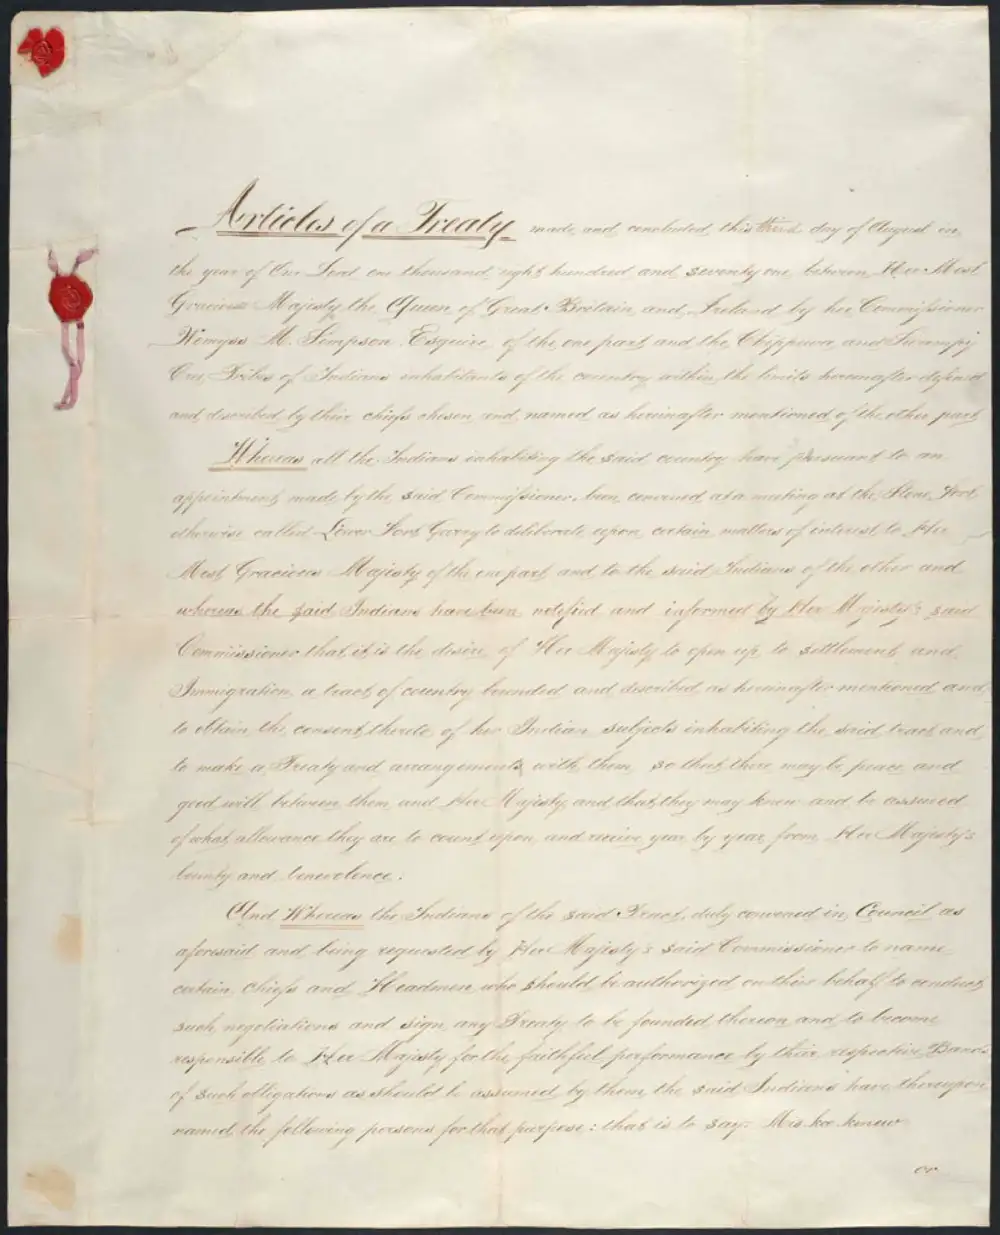 Articles of a Treaty made and concluded this third day of August in
the year of Our Lord one thousand eight hundred and seventy one between Her Most
Gracious Majesty the Queen of Great Britain and Ireland by her Commissioner
Wemyss M. Simpson Esquire of the one part and the Chippewa and Swampy
Cree Tribes of Indians inhabitants of the country within the limits hereinafter defined
and described by their chiefs chosen and named as hereinafter mentioned of the other part
Whereas all the Indians inhabiting the said country have pursuant to an
appointment made by the said Commissioner been convened at a meeting at the Stone Fort
otherwise called Lower Fort Garry to deliberate upon certain matters of interest to Her
Most Gracious Majesty of the one part and to the said Indians of the other and
whereas the said Indians have been notified and informed by Her Majesty's said
Commissioner that it is the desire of Her Majesty to open up to settlement and
Immigration a tract of country bounded and described as hereinafter mentioned and
to obtain the consent thereto of her Indian subjects inhabiting the said tract and
to make a Treaty and arrangements with them so that there may be peace and
good will between them and Her Majesty and that they may know and be assured
of what allowance they are to count upon and receive year by year from Her Majesty's
bounty and benevolence.
And Whereas the Indians of the said Tract duly convened in Council as
aforesaid and being requested by Her Majesty's said Commissioner to name
certain chiefs and Headmen who should be authorized on their behalf to conduct
such negotiations and sign any Treaty to be founded thereon and to become
responsible to Her Majesty for the faithful performance by their respective Bands
of such obligations as should be assumed by them the said Indians have thereupon
named the following persons for that purpose: that is to say: Mis-koo-kenew
or